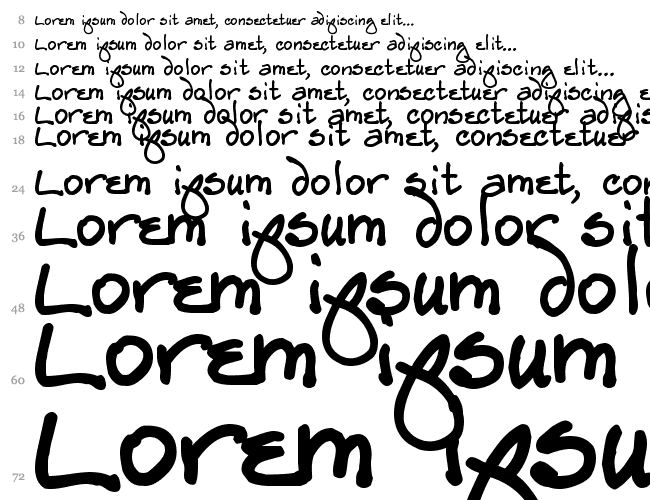 8 Lorem ipsum dolor sit amet, consectetuer adipiscing elit...
10 Lorem ipsum dolor sit amet, consectetuer adipiscing elit...
12 Lorem ipsum dolor sit amet, consectetuer adipiscing elit...
14 Lorem ipsum dolor sit amet, consectetuer adipiscing e
16 Lorem ipsum dolor sit amet, consectetuer adipis
18 Lorem ipsum dolor sit amet, consectetuer
24 Lorem ipsum dolor sit amet, con
36 Lorem ipsum dolor sit
48 Lorem ipsum dol
60 Lorem ipsum
72 Lorem ipsu